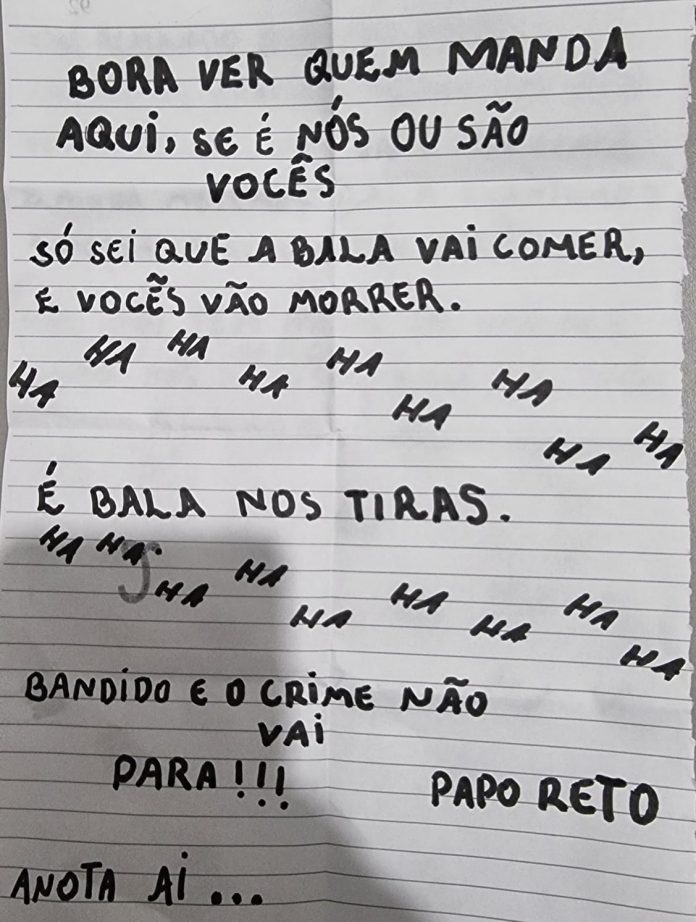 BORA VER QUEM MANDA
AQUI, SE É NÓS OU SÃO
VOCÊS
SÓ SEI QUE A BALA VAI COMER,
E VOCÊS VÃO MORRER.
HA HA HA HA HA HA HA HA HA
É BALA NOS TIRAS.
HA HA HA HA HA HA HA HA HA
BANDIDO E O CRIME NÃO
VAI
PARA!!! PAPO RETO
ANOTA AI...